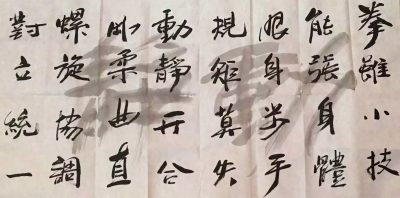 拳雖小技
能強身體
眼身步手
規矩莫失
動靜开合
剛柔曲直
螺旋協調
對立統一